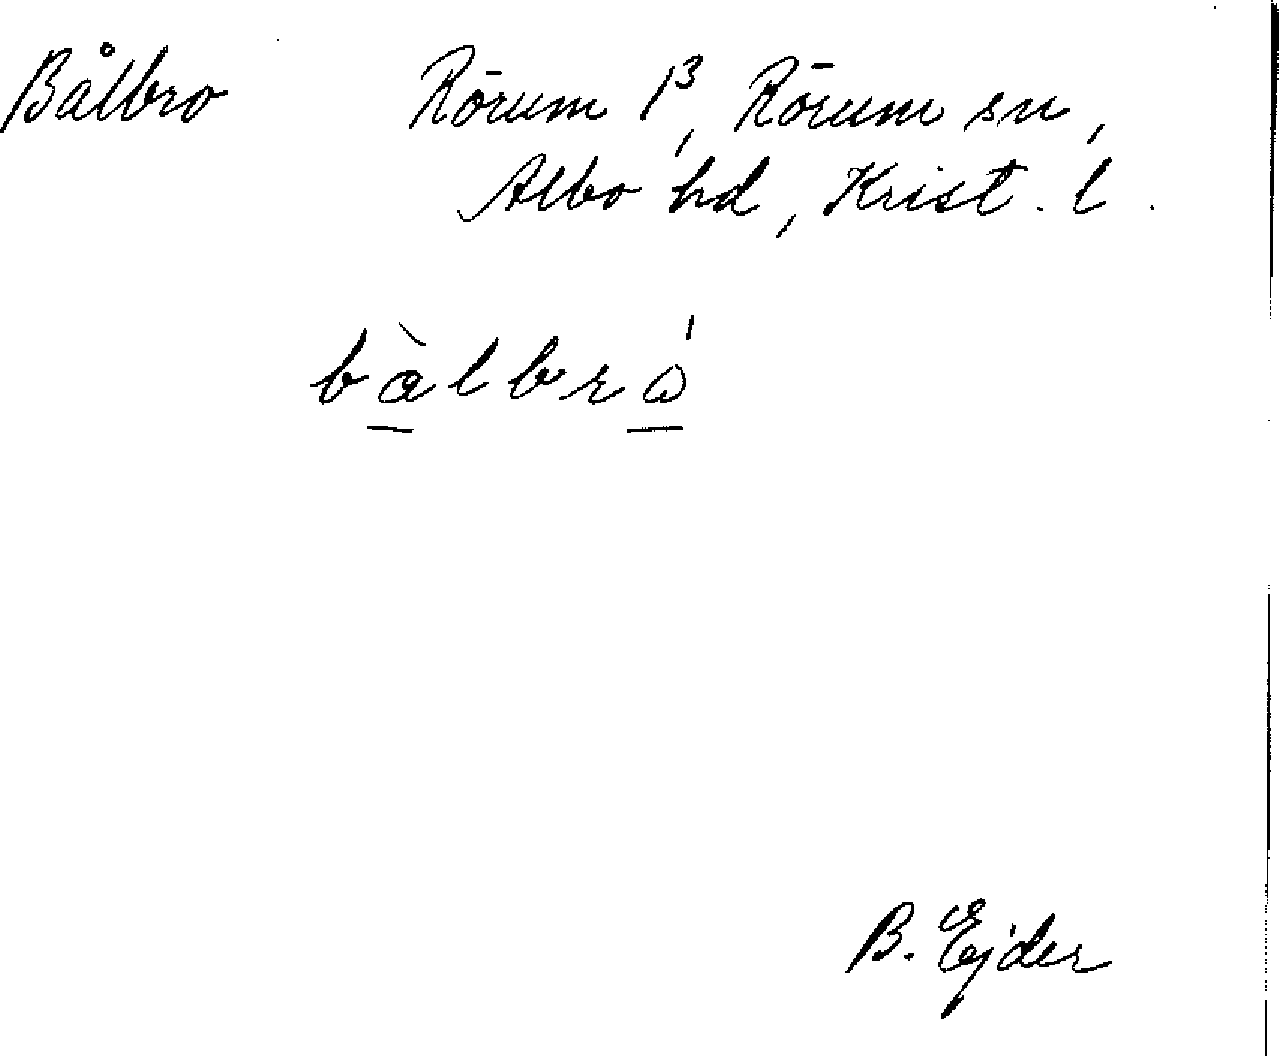 Bålbro Rörum β, Rörum sn,
Albo hd, Krist. l.
bàlbró
B. Ejder